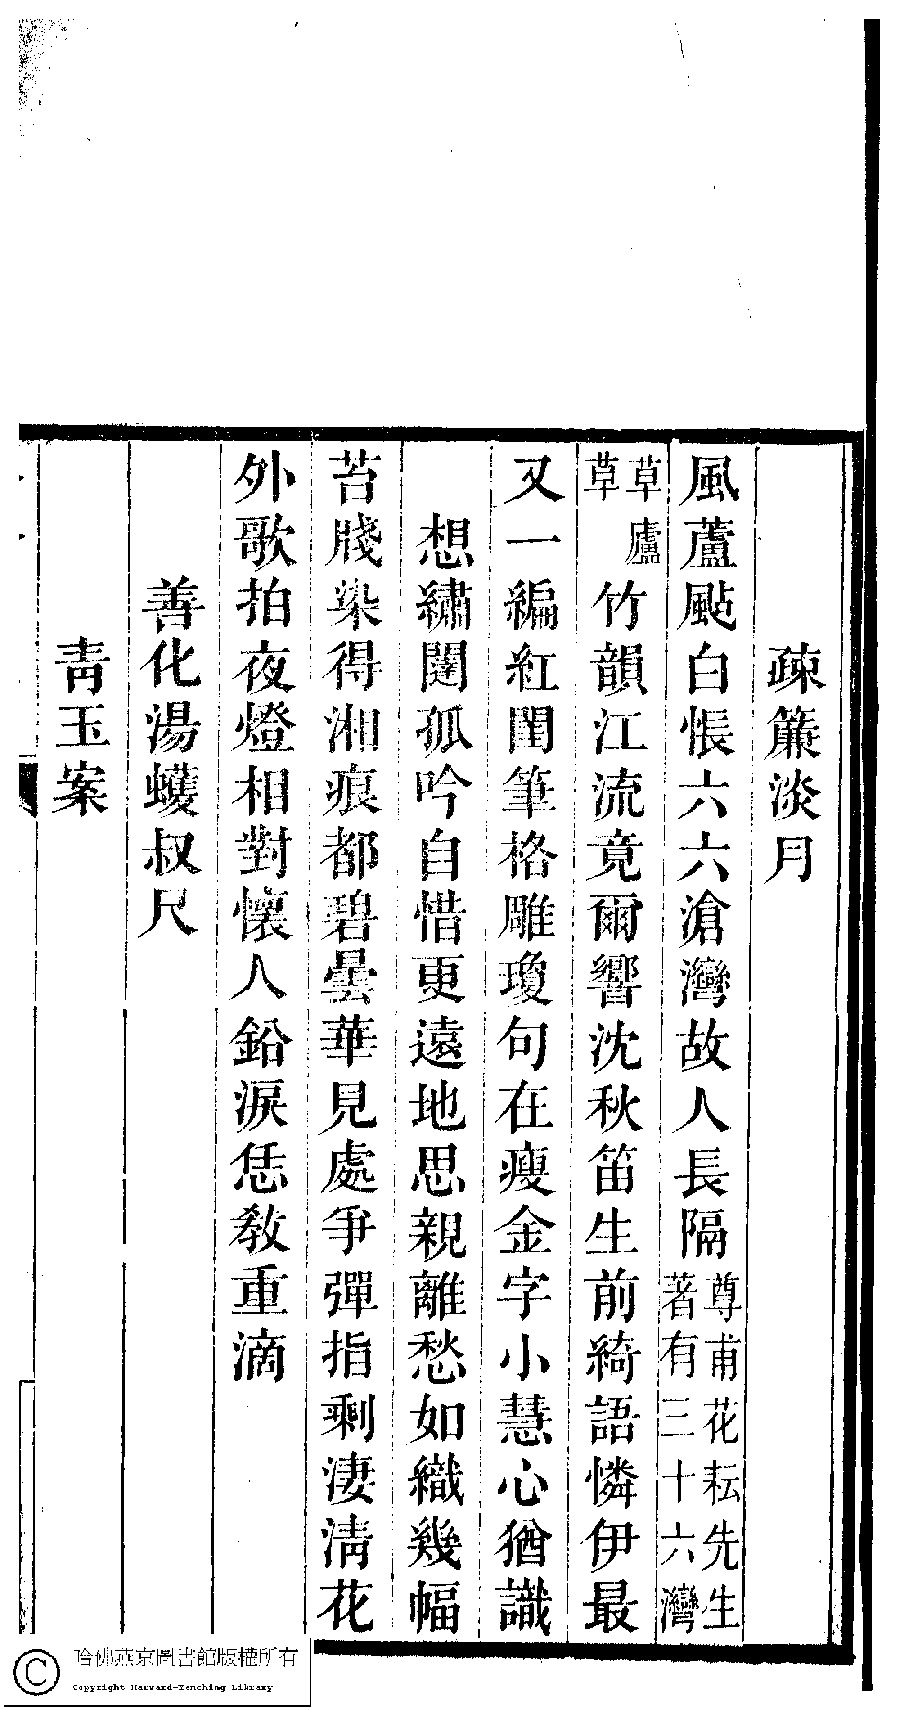 疎簾淡月
風蘆颭白悵六六滄灣故人長隔尊甫花耘先生著有三十六灣
草廬草竹韻江流竟爾響沈秋笛生前綺語憐伊最
又一編紅閨筆格雕瓊句在瘦金字小慧心猶識
想繡闥孤吟自惜更遠地思親離愁如織幾幅
苔牋染得湘痕都碧曇華見處爭彈指剩淒淸花
外歌拍夜燈相對懷人鉛淚恁敎重滴
善化湯蠖叔尺
靑玉案
哈佛燕京圖書館版權所有
Copyright Harvard-Yenching Library